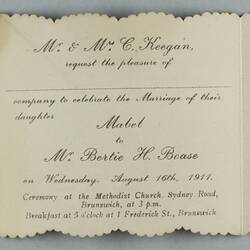 Mr. & Mrs. C. Keegan,
request the pleasure of
company to celebrate the Marriage of their
daughter
Mabel
to
Mr. Bertie H. Boase
on Wednesday, August 16th, 1911.
Ceremony at the Methodist Church, Sydney Road,
Brunswick, at 3 p.m.
Breakfast at 5 o'clock at 1 Frederick St., Brunswick